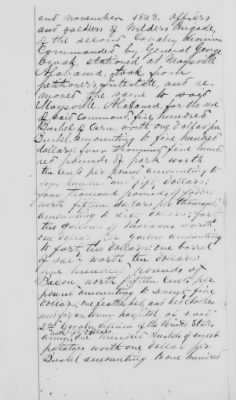 and November 1863, Officers
and soldiers of Wilders Brigade,
of the second Cavalry division
Commanded by General George
Crook, stationed at Maysville
Alabama, took from
petitioner's intestate, and re-
moved the same to said
Maysville Alabama for the use
of said command, five hundred
Bushels of Corn, worth one dollar per
Bushel amounting to five hundred
dollars; four thousand five hund
red pounds of pork worth
ten cents per pound amounting to
four hundred and fifty dollars;
four thousand pounds of fodder
worth fifteen dollars per thousand,
amounting to sixty dollars; for
ty Gallons of Molasses worth
one dollar per Gallon amounting
to forty dollars; one barrel
of salt worth ten dollars
one hundred pounds of
Bacon worth fifteen cents per
pound amounting to
dollars; one feather bed, and bed clothes
used for an army hospital of said
2nd Cavalry division of the United States
army; one hundred bushels of sweet
potatoes worth one dollar per
Bushel amounting to one hundred